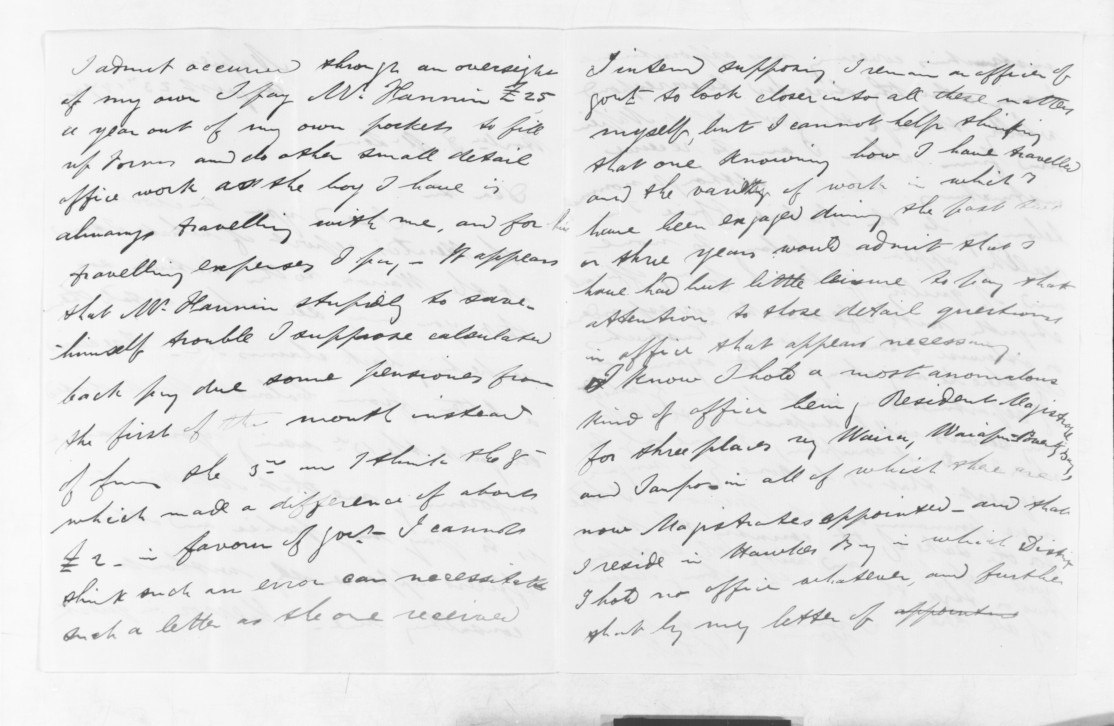 I admit occurred through an oversight
of my own I pay Mr. Hannin £25
a year out of my own pockets to fill
up Forms and do other small detail
office work as the boy I have is
always travelling with me, and for his
travelling expenses I pay – It appears
that Mr. Hannin stupidly to save
himself trouble I suppose calculated
back pay due some pensioners from
the first of the month instead
of from the 3rd or I think the 8th
which made a difference of about
£2 – in favour of govt – I cannot
think such an error can necessitate
such a letter as the one received
I intend supposing I remain an officer of
govt to look closer into all these matters
myself, but I cannot help thinking
that one knowing how I have travelled
and the variety of work in which I
have been engaged during the past two
or three years would admit that I
have had but little leisure to pay that
attention to those detail questions
in office that appears necessary.
I know I hold a most anomalous
kind of office being Resident Magistrate
for three places viz Wairoa, Waiapu Poverty Bay
and Taupo in all of which there are
now Magistrates appointed – and that
I reside in Hawkes Bay in which District
I hold no office whatever, and further
that by my letter of appointmt